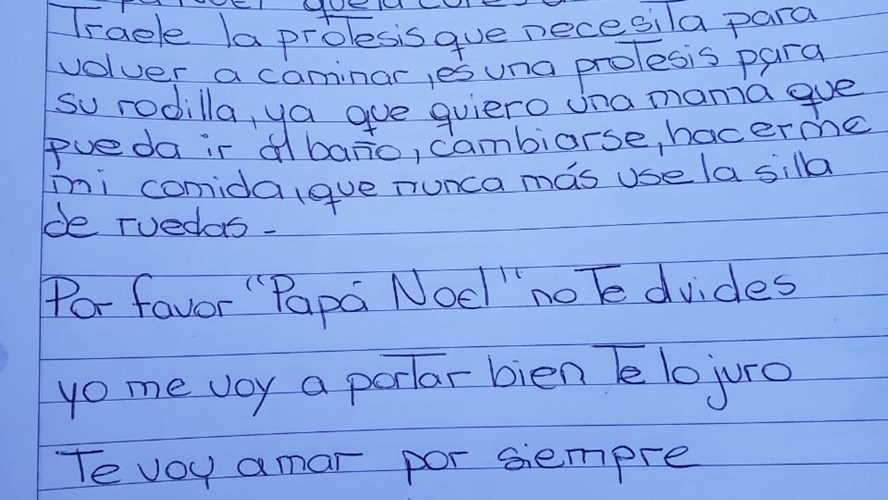 Traele la protesis que necesita para
volver a caminar, es una protesis para
su rodilla, ya que quiero una mama que
pueda ir al baño, cambiarse, hacerme
mi comida, que nunca más use la silla
de ruedas -
Por favor "Papá Noel" no Te dvides
yo me voy a portar bien Te lo juro
Te voy amar por siempre